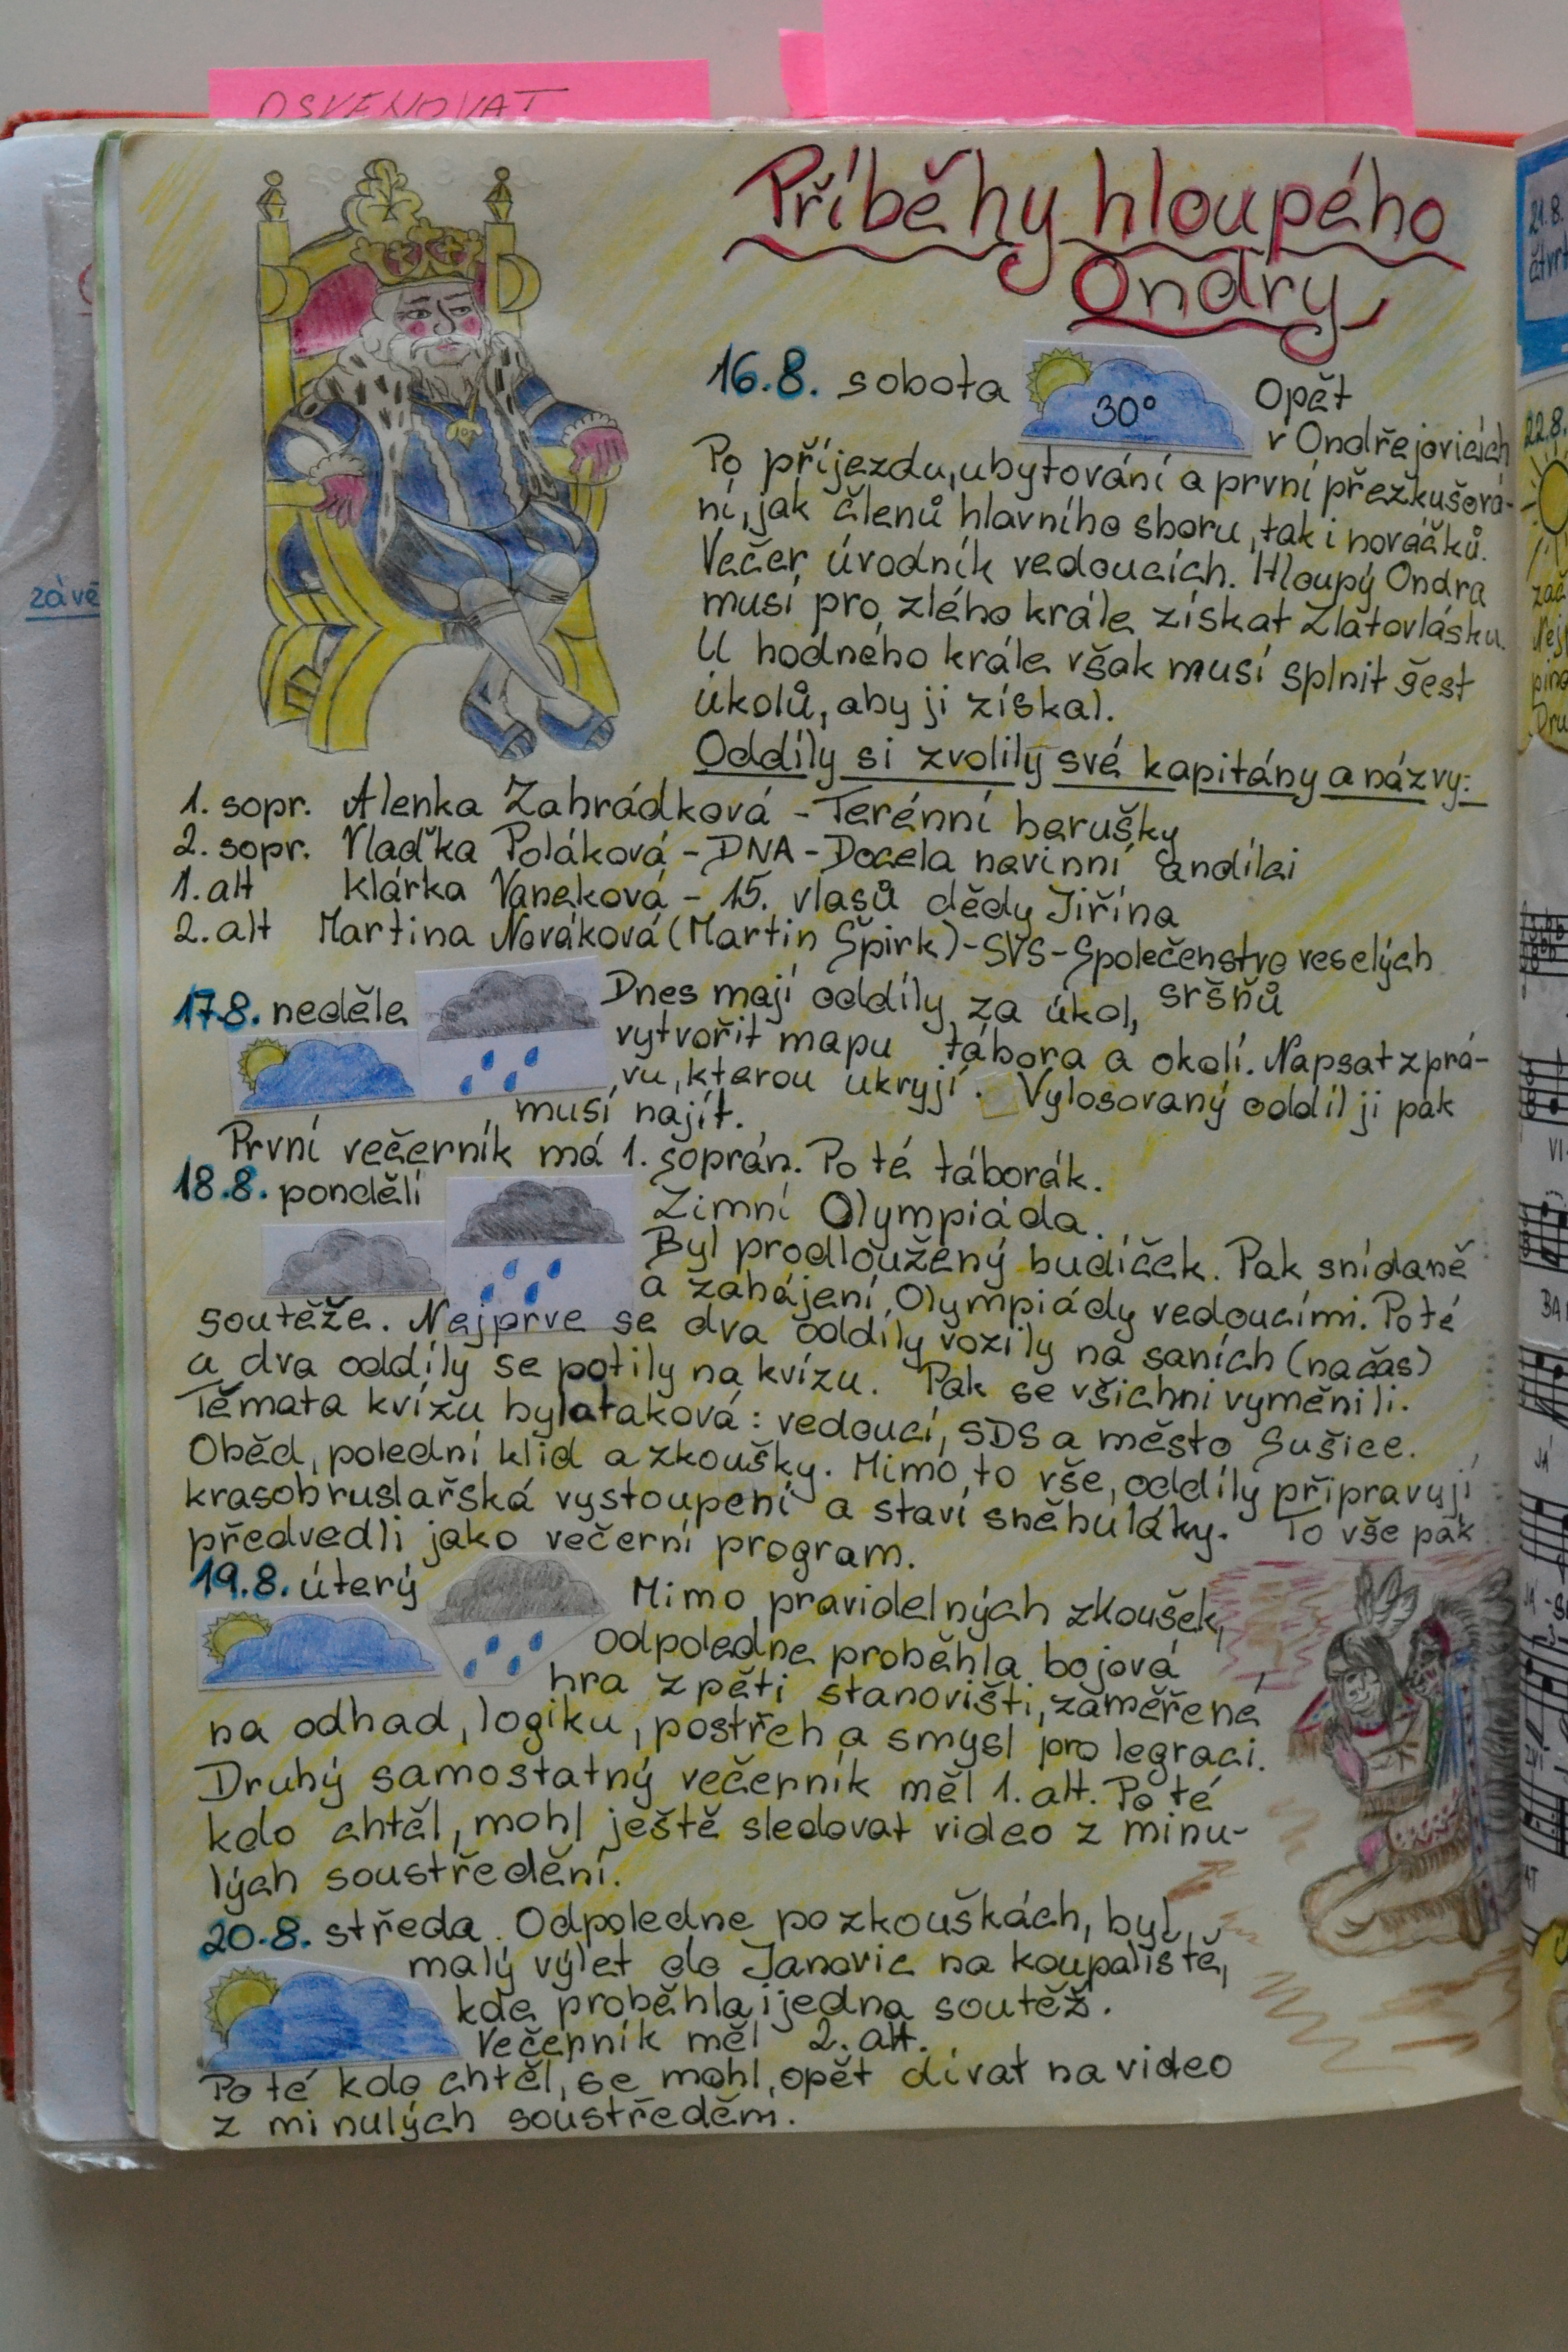 OSVĚNOVAT
závě
Příběhy hloupého
Ondry
16.8. sobota 30° Opět
v Ondřejovicích
Po příjezdu, ubytování a první přezkušová-
ní, jak členů hlavního sboru, tak i nováčků.
Večer úvodník vedoucích. Hloupý Ondra
musí pro zlého krále získat Zlatovlásku.
U hodného krále však musí splnit šest
úkolů, aby ji získal.
Oddíly si zvolily své kapitány a názvy:
1. sopr. Alenka Zahrádková - Terénní berušky
2. sopr. Vlaďka Poláková - DNA - Docela nevinní andílci
1. alt Klárka Vaneková - 15. vlasů dědy Jiřína
2. alt Martina Nováková (Martin Špirk) - SVS - Společenstvo veselých
sršňů
17.8. neděle Dnes mají oddíly za úkol,
vytvořit mapu tábora a okolí. Napsat zprá-
vu, kterou ukryjí. Vylosovaný oddíl ji pak
musí najít.
První večerník má 1. soprán. Po té táborák.
18.8. pondělí Zimní Olympiáda.
Byl prodloužený budíček. Pak snídaně
a zahájení Olympiády vedoucími. Po té
soutěže. Nejprve se dva oddíly vozily na saních (na čas)
a dva oddíly se potily na kvízu. Pak se všichni vyměnili.
Témata kvízu byla taková: vedoucí, SDS a město Sušice.
Oběd, polední klid a zkoušky. Mimo to vše, oddíly připravují
krasobruslařská vystoupení a staví sněhuláky. To vše pak
předvedli jako večerní program.
19.8. úterý Mimo pravidelných zkoušek,
odpoledne proběhla bojová
hra z pěti stanovišti, zaměřené
na odhad, logiku, postřeh a smysl pro legraci.
Druhý samostatný večerník měl 1. alt. Po té
kdo chtěl, mohl ještě sledovat video z minu-
lých soustředění.
20.8. středa. Odpoledne po zkouškách, byl
malý výlet do Janovic na koupaliště,
kde proběhla i jedna soutěž.
Večerník měl 2. alt.
Po té kdo chtěl, se mohl opět dívat na video
z minulých soustředění.
21.8.
čtvrt
22.8.
zač
Nej
pino
Dru